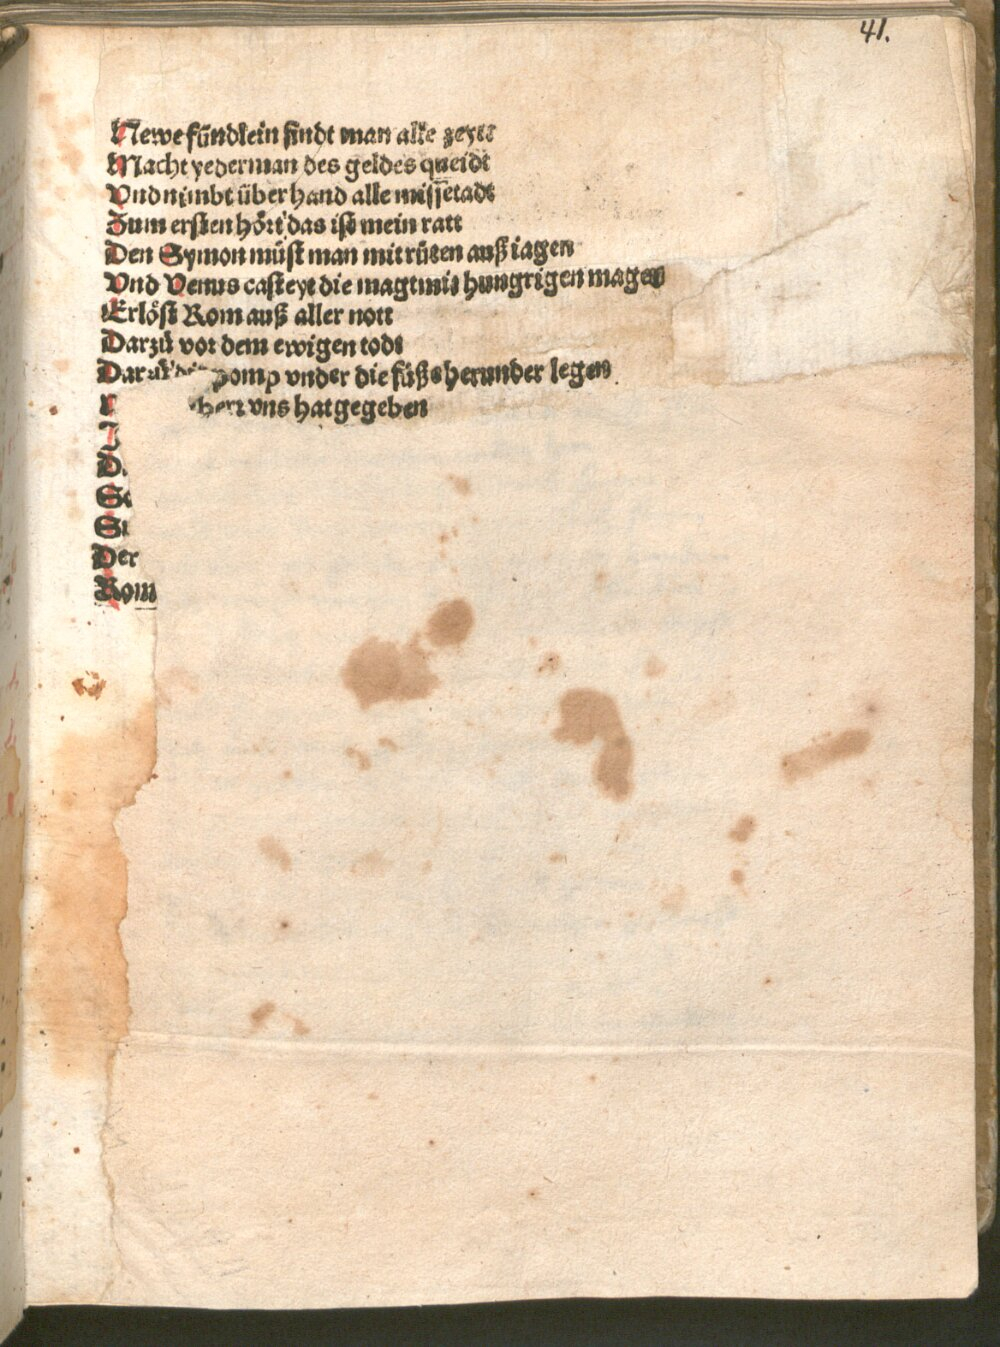 41.
Newe fündlein findt man alle zeytt
Macht yederman des geldes queidt
Vnd nimbt über hand alle missetadt
Zum ersten hört das ist mein ratt
Den Symon müst man mit rüten auß iagen
Vnd Venus casteyt die magt mit hungrigen magen
Erlöst Rom auß aller nott
Darzü vor dem ewigen todt
pomp vnder die füß herunder legen
herr vns hat gegeben
D
Se
Si
Der
Rom